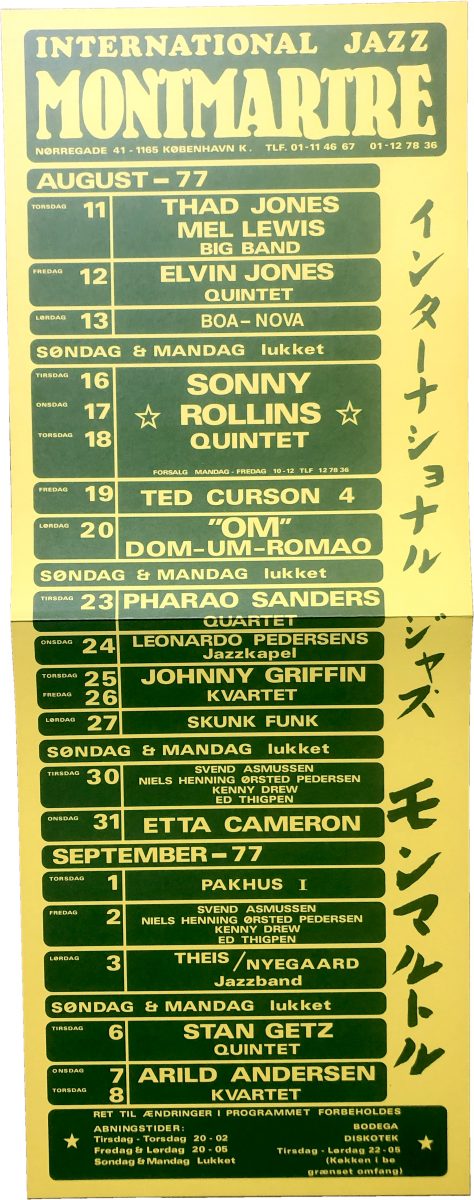 INTERNATIONAL JAZZ
MONTMARTRE
NØRREGADE 41 - 1165 KØBENHAVN K. TLF. 01-11 46 67 01-12 78 36
AUGUST - 77
TORSDAG 11 THAD JONES
MEL LEWIS
BIG BAND
FREDAG 12 ELVIN JONES
QUINTET
LØRDAG 13 BOA-NOVA
SØNDAG & MANDAG lukket
TIRSDAG 16 SONNY
ONSDAG 17 ROLLINS
TORSDAG 18 QUINTET
FORSALG MANDAG - FREDAG 10-12 TLF 12 78 36
FREDAG 19 TED CURSON 4
LØRDAG 20 "OM"
DOM-UM-ROMAO
SØNDAG & MANDAG lukket
TIRSDAG 23 PHARAO SANDERS
QUARTET
ONSDAG 24 LEONARDO PEDERSENS
Jazzkapel
TORSDAG 25 JOHNNY GRIFFIN
FREDAG 26 KVARTET
LØRDAG 27 SKUNK FUNK
SØNDAG & MANDAG lukket
TIRSDAG 30 SVEND ASMUSSEN
NIELS HENNING ØRSTED PEDERSEN
KENNY DREW
ED THIGPEN
ONSDAG 31 ETTA CAMERON
SEPTEMBER - 77
TORSDAG 1 PAKHUS I
FREDAG 2 SVEND ASMUSSEN
NIELS HENNING ØRSTED PEDERSEN
KENNY DREW
ED THIGPEN
LØRDAG 3 THEIS/NYEGAARD
Jazzband
SØNDAG & MANDAG lukket
TIRSDAG 6 STAN GETZ
QUINTET
ONSDAG 7 ARILD ANDERSEN
TORSDAG 8 KVARTET
RET TIL ÆNDRINGER I PROGRAMMET FORBEHOLDES
ABNINGSTIDER:
Tirsdag - Torsdag 20 - 02
Fredag & Lørdag 20 - 05
Søndag & Mandag Lukket
BODEGA
DISKOTEK
Tirsdag - Lørdag 22-05
(Køkken i be
grænset omfang)
インターナショナル
ジャズ
モンマルトル